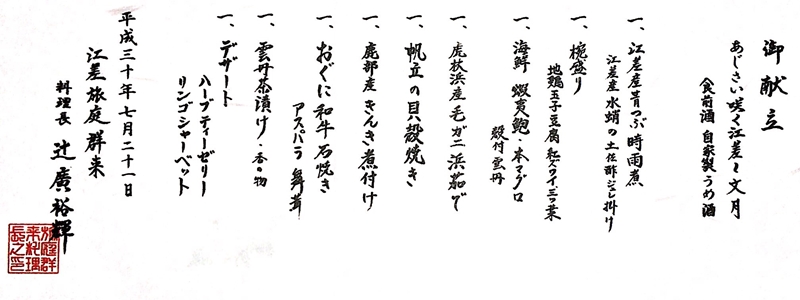 御献立
あじさい咲く江差〜文月
食前酒 自家製うめ酒
一、江差産青つぶ時雨煮
江差産水蛸の土佐酢ジュレ掛け
一、椀盛り
地鶏玉子豆腐 紅ズワイ 三つ葉
一、海鮮 蝦夷鮑・本マグロ
殻付雲丹
一、虎杖浜産毛ガニ浜茹で
一、帆立の貝殻焼き
一、鹿部産きんき煮付け
一、おぐに和牛石焼き
アスパラ 舞茸
一、雲丹茶漬け・香の物
一、デザート
ハーブティーゼリー
リンゴシャーベット
平成三十年七月二十一日
江差旅庭群来
料理長 辻廣裕輝
旅庭群来料理長之印